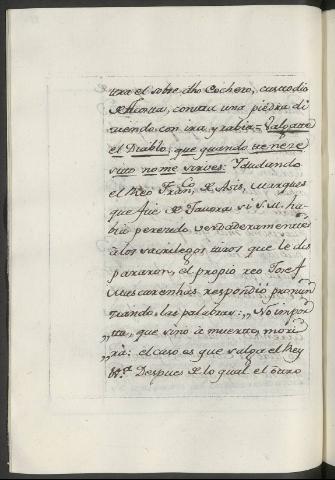 tra el sobre dho Cochero, custodio
de Acosta, contra una piedra di
ciendo con ira, y rabia = Valgate
el Diablo; que quando te nece
sito no me sirves: Y dudando
el Reo Franco de Asis, Marques
que fue de Tavora si S. M. ha
bia perecido verdaderamente
a los sacrilegos tiros que le dis
pararon, el propio reo Josef
Mascarenhas respondió pronun
ciando las palabras: „ No impor
„ ta, que sino á muerto, mori
„ rá: el caso es que salga el Rey
Despues de lo qual el otro